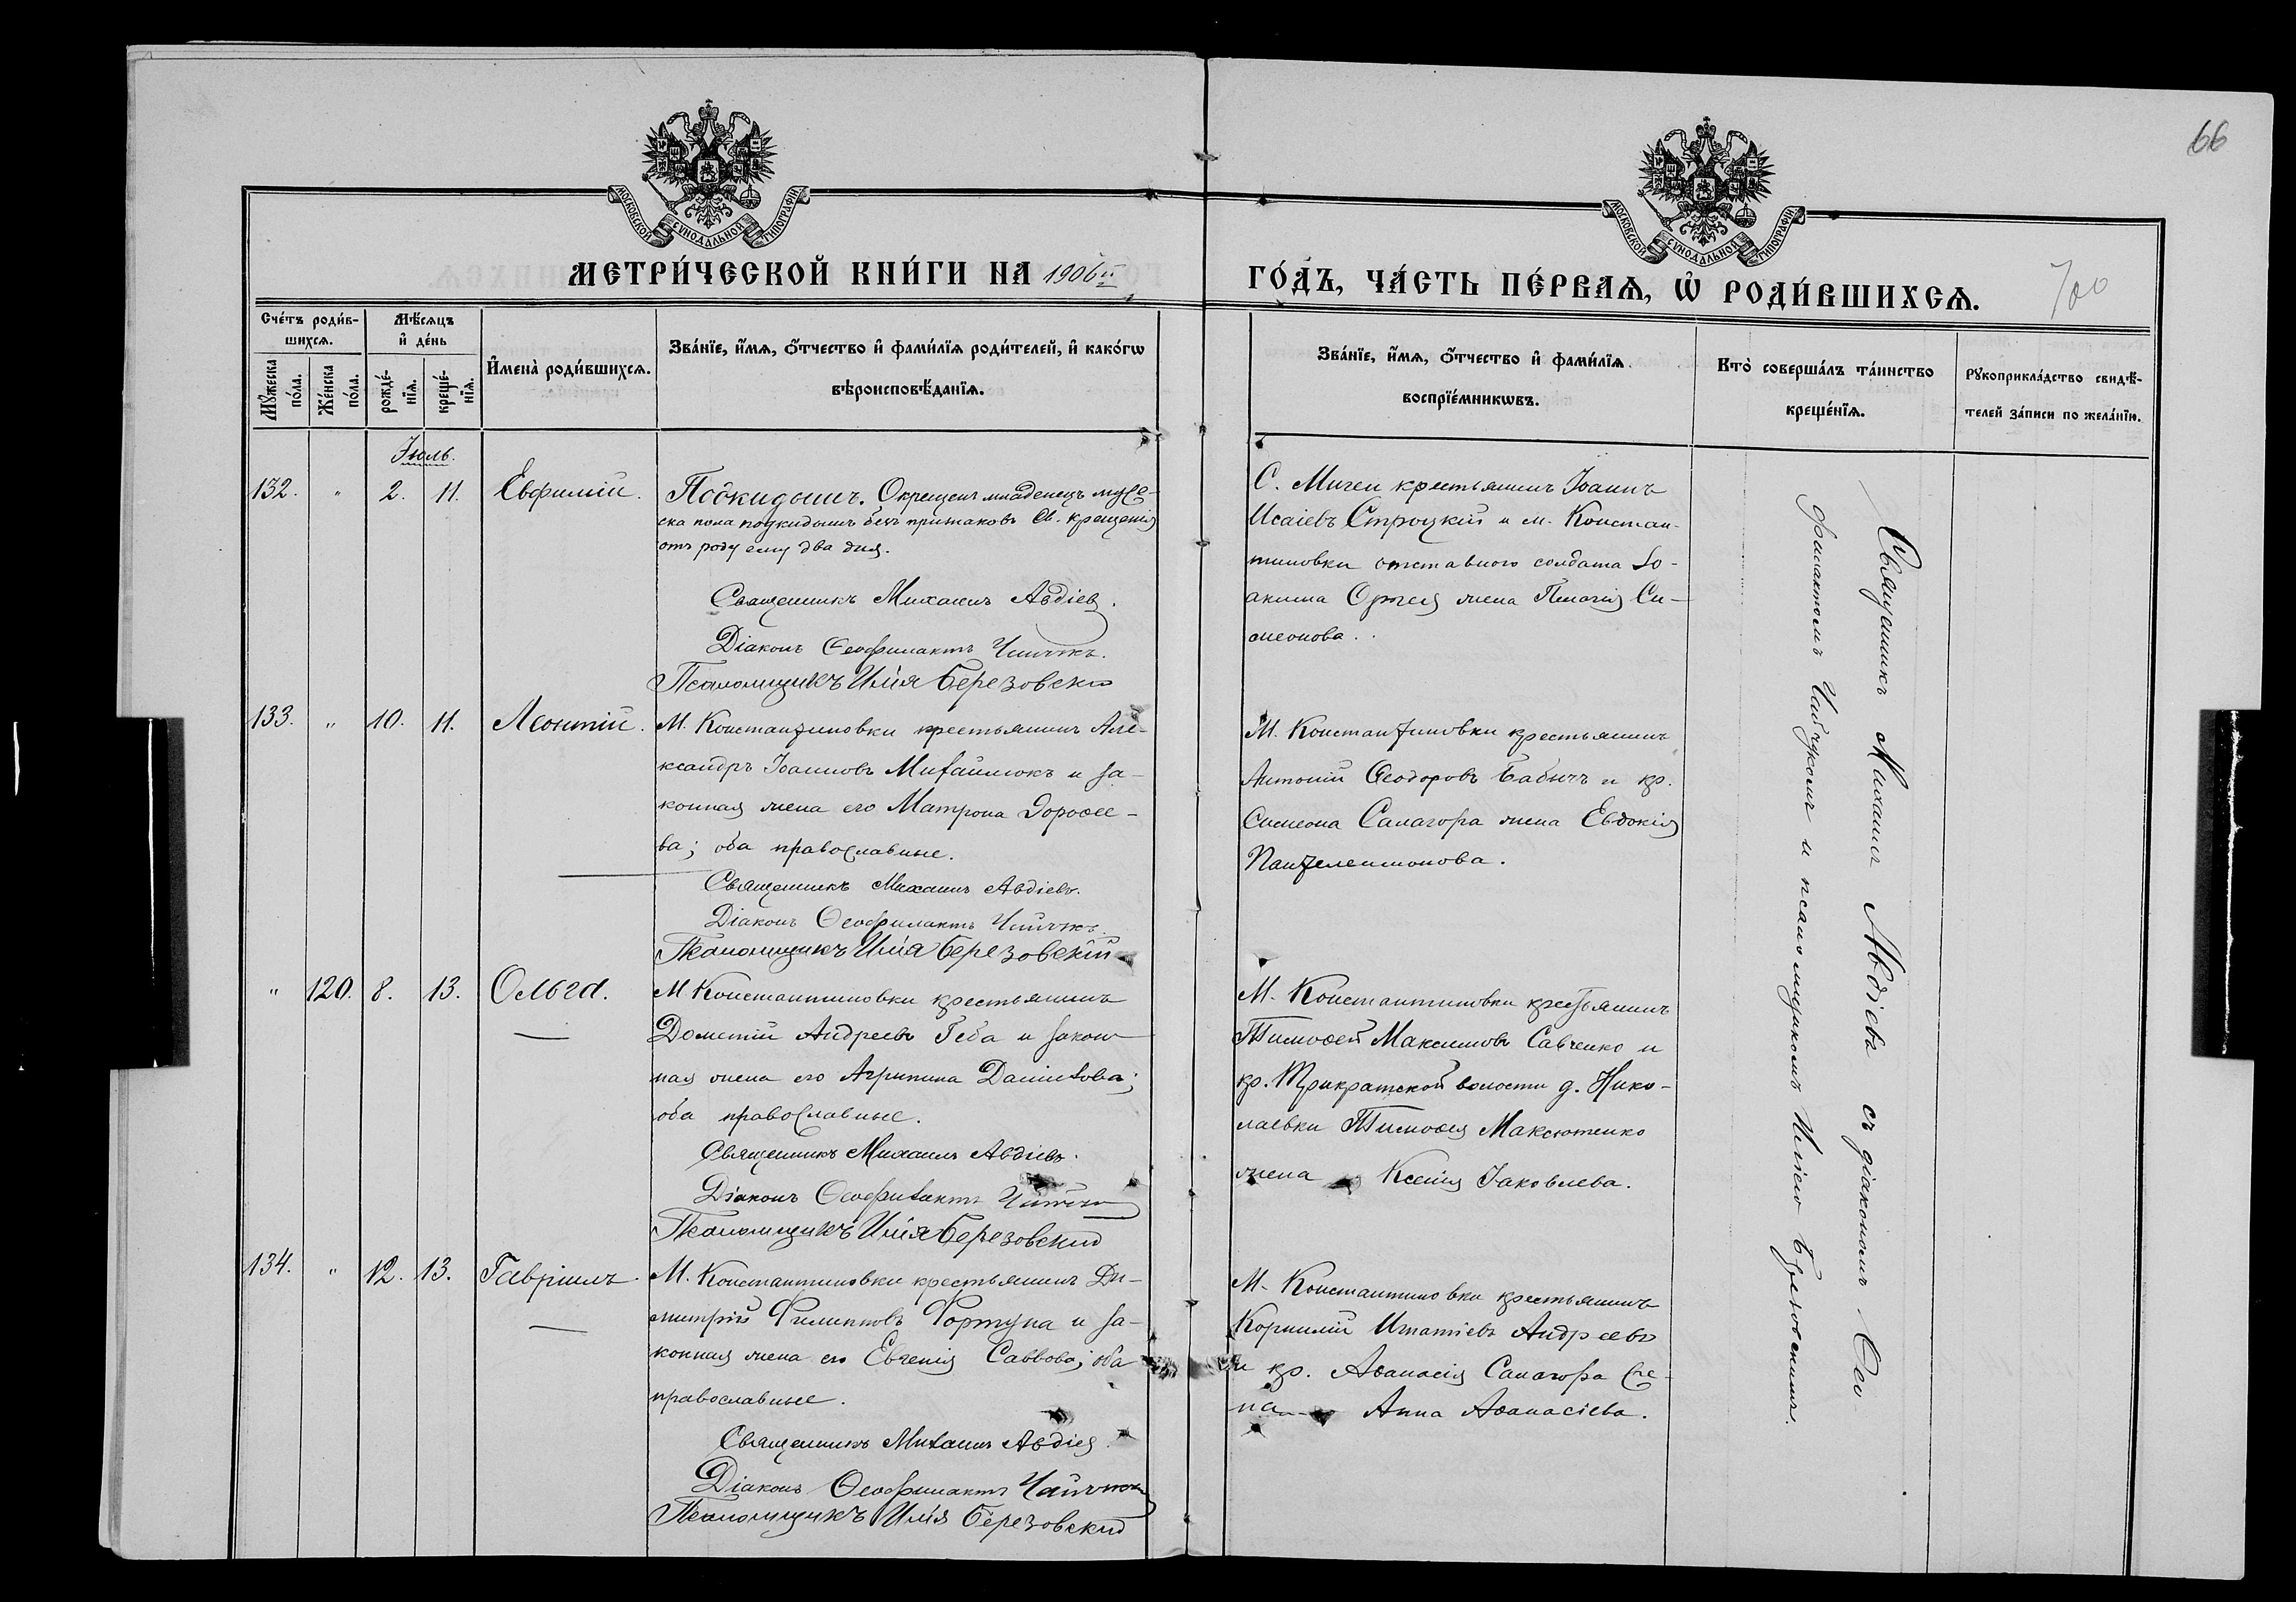 66
МОСКОВСКОЙ СѴНОДАЛЬНОЙ ТИПОГРАФІИ
МОСКОВСКОЙ СѴНОДАЛЬНОЙ ТИПОГРАФІИ
МЕТРИ́ЧЕСКОЙ КНИ́ГИ НА 1906й
ГО́ДЪ, ЧА́СТЬ ПЕ́РВАѦ, Ѡ҆ РОДИ́ВШИХСѦ.
700
Сче́тъ роди́в-
шихсѧ.
Мѣ́сѧцъ
и҆ де́нь
Мꙋ́жеска
по́ла.
Же́нска
по́ла.
рожде́-
нїѧ.
креще́-
нїѧ.
И҆мена̀ роди́вшихсѧ.
Зва́нїе, и҆́мѧ, ѻ҆́тчество и҆ фами́лїѧ роди́телей, и҆ како́гѡ
вѣроисповѣ́данїѧ.
Зва́нїе, и҆́мѧ, ѻ҆́тчество и҆ фами́лїѧ
воспрїе́мникѡвъ.
Кто̀ соверша́лъ та́инство
креще́нїѧ.
Рꙋкоприкла́дство свидѣ́-
телей за́писи по жела́нїю.
Іюль.
132. " 2. 11. Евфимій.
Подкидышъ. Окрещенъ младенецъ муже-
ска пола подкидышъ безъ признаковъ Св. крещенія
отъ роду ему два дня.
Священникъ Михаилъ Авдіевъ.
Діаконъ Ѳеофилактъ
Псаломщикъ Илія Березовскій
С. Мигеи крестьянинъ Іоаннъ
Исаіевъ Строцкій и м. Констан-
тиновки отставного солдата Іо-
акима жена Пелагія Си-
меонова.
133. " 10. 11. Леонтій.
М. Константиновки крестьянинъ Але-
ксандръ Іоанновъ Михайлюкъ и за-
конная жена его Матрона Дороѳее-
ва; оба православные.
Священникъ Михаилъ Авдіевъ.
Діаконъ Ѳеофилактъ
Псаломщикъ Илія Березовскій
М. Константиновки крестьянинъ
Антоній Ѳеодоровъ Бабичъ и кр.
Симеона Салагора жена Евдокія
Пантелеимонова.
" 120. 8. 13. Ольга.
М. Константиновки крестьянинъ
Дометій Андреевъ Геба и закон-
ная жена его Агрипина Даніилова;
оба православные.
Священникъ Михаилъ Авдіевъ.
Діаконъ Ѳеофилактъ
Псаломщикъ Илія Березовскій
М. Константиновки крестьянинъ
Тимоѳей Максимовъ Савченко и
кр. Трикратской волости д. Нико-
лаевки Тимоѳея Максютенко
жена Ксенія Іаковлева.
134. " 12. 13. Гавріилъ.
М. Константиновки крестьянинъ Ди-
митрій Филипповъ Фортуна и за-
конная жена его Евгенія Саввова; оба
православные.
Священникъ Михаилъ Авдіевъ.
Діаконъ Ѳеофилактъ
Псаломщикъ Илія Березовскій
М. Константиновки крестьянинъ
Корнилій Игнатіевъ Андреевъ
и кр. Аѳанасія Салагора же-
на Анна Аѳанасіева.
Священникъ Михаилъ Авдіевъ съ діакономъ Ѳео-
филактомъ и псаломщикомъ Иліею Березовскимъ.